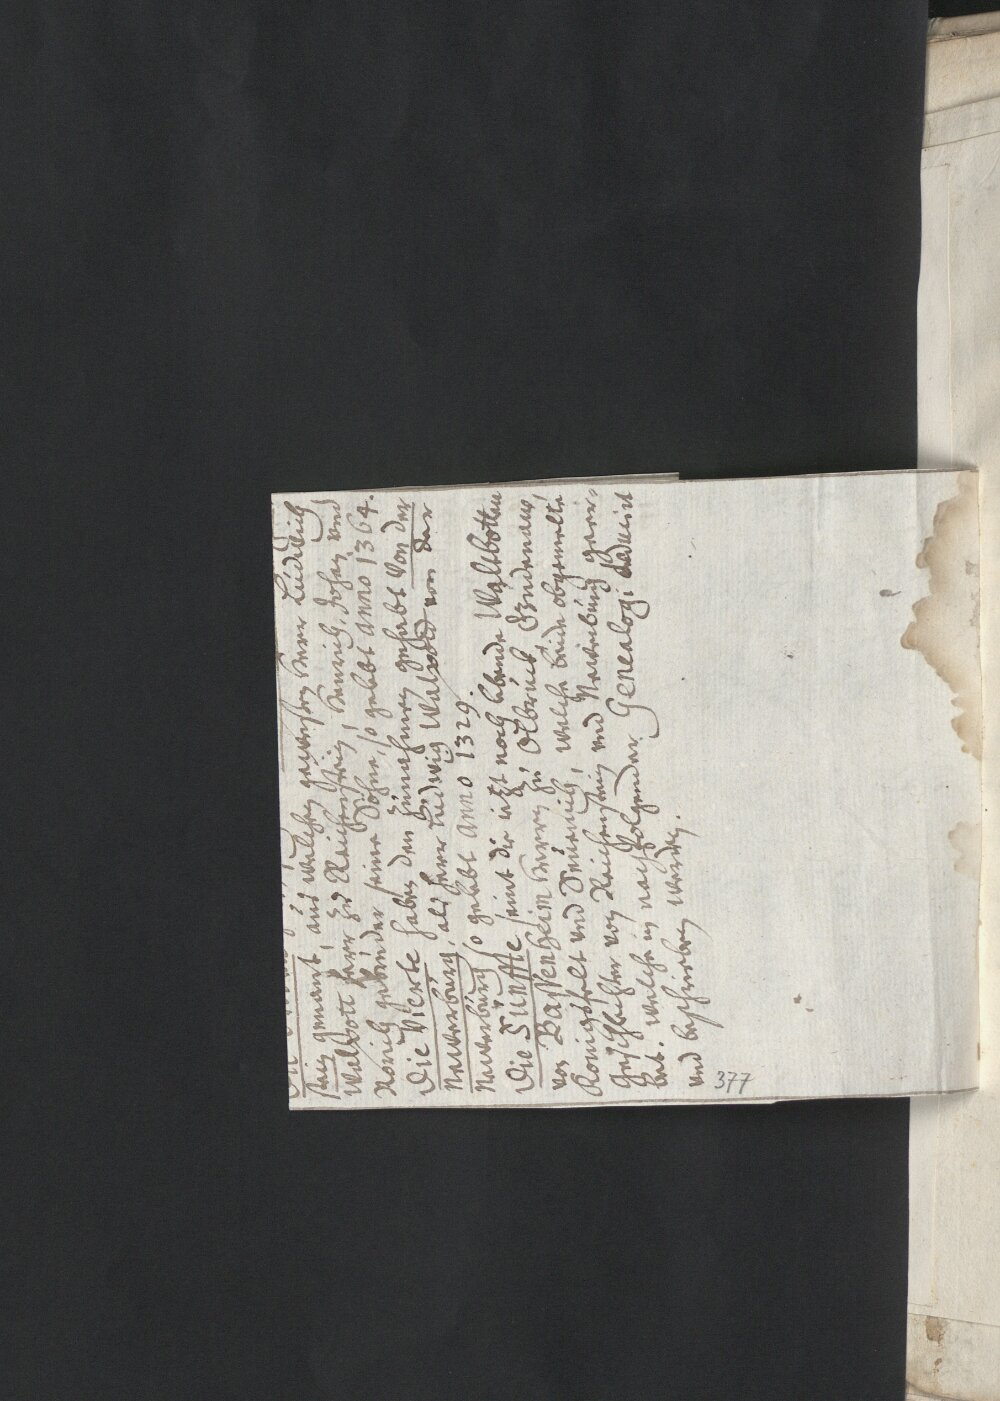 stein genant, aus welchen gewesen Herr Ludwich
Walpott Herr zu Reichenstein, Henrich, Johan, und
Rorich gebrüder seine Söhne, so gelebt anno 1364.
Die Vierte haben den Zunahmen gehabt von der
Newerburg, als Herr Ludwig Walpod von der
Newerburg so gelebt anno 1329.
Die Fünffte seint die itzt noch lebende Waltbotten
von Bassenheim Herrn zu Olbrück Gudenaw,
Konigsfelt und Sevenich, welche beide obgemelte
Geschlechter von Reichenstein und Newerburg geer=
bet. welche in nachfolgender Genealogi deducirt
und beschrieben werden.
377